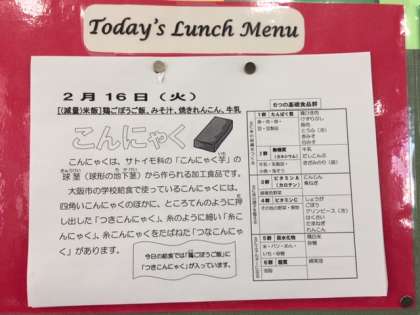 Today's Lunch Menu
２月１６日（火）
[(減量)米飯] 鶏ごぼうご飯、みそ汁、焼きれんこん、牛乳
こんにゃく
こんにゃくは、サトイモ科の「こんにゃく芋」の
球茎（球形の地下茎）から作られる加工食品です。
大阪市の学校給食で使っているこんにゃくには、
四角いこんにゃくのほかに、ところてんのように押
し出した「つきこんにゃく」、糸のように細い「糸こ
んにゃく」、糸こんにゃくをたばねた「つなこんにゃ
く」があります。
今日の給食では「鶏ごぼうご飯」に
「つきこんにゃく」が入っています。
６つの基礎食品群
１群 たんぱく質
魚・肉・卵・
豆・豆製品
鶏ひき肉
けずりぶし
豚肉
とうふ（冷）
赤みそ
白みそ
２群 無機質
（カルシウム）
牛乳・乳製品・
小魚・海そう
牛乳
だしこんぶ
きざみのり
３群 ビタミンA
（カロテン）
緑黄色野菜
にんじん
青ねぎ
４群 ビタミンC
その他の野菜・果物
しょうが
ごぼう
グリンピース（冷）
はくさい
たまねぎ
れんこん
５群 炭水化物
米・パン・めん・
いも・砂糖
精白米
砂糖
６群 脂質
油脂
綿実油